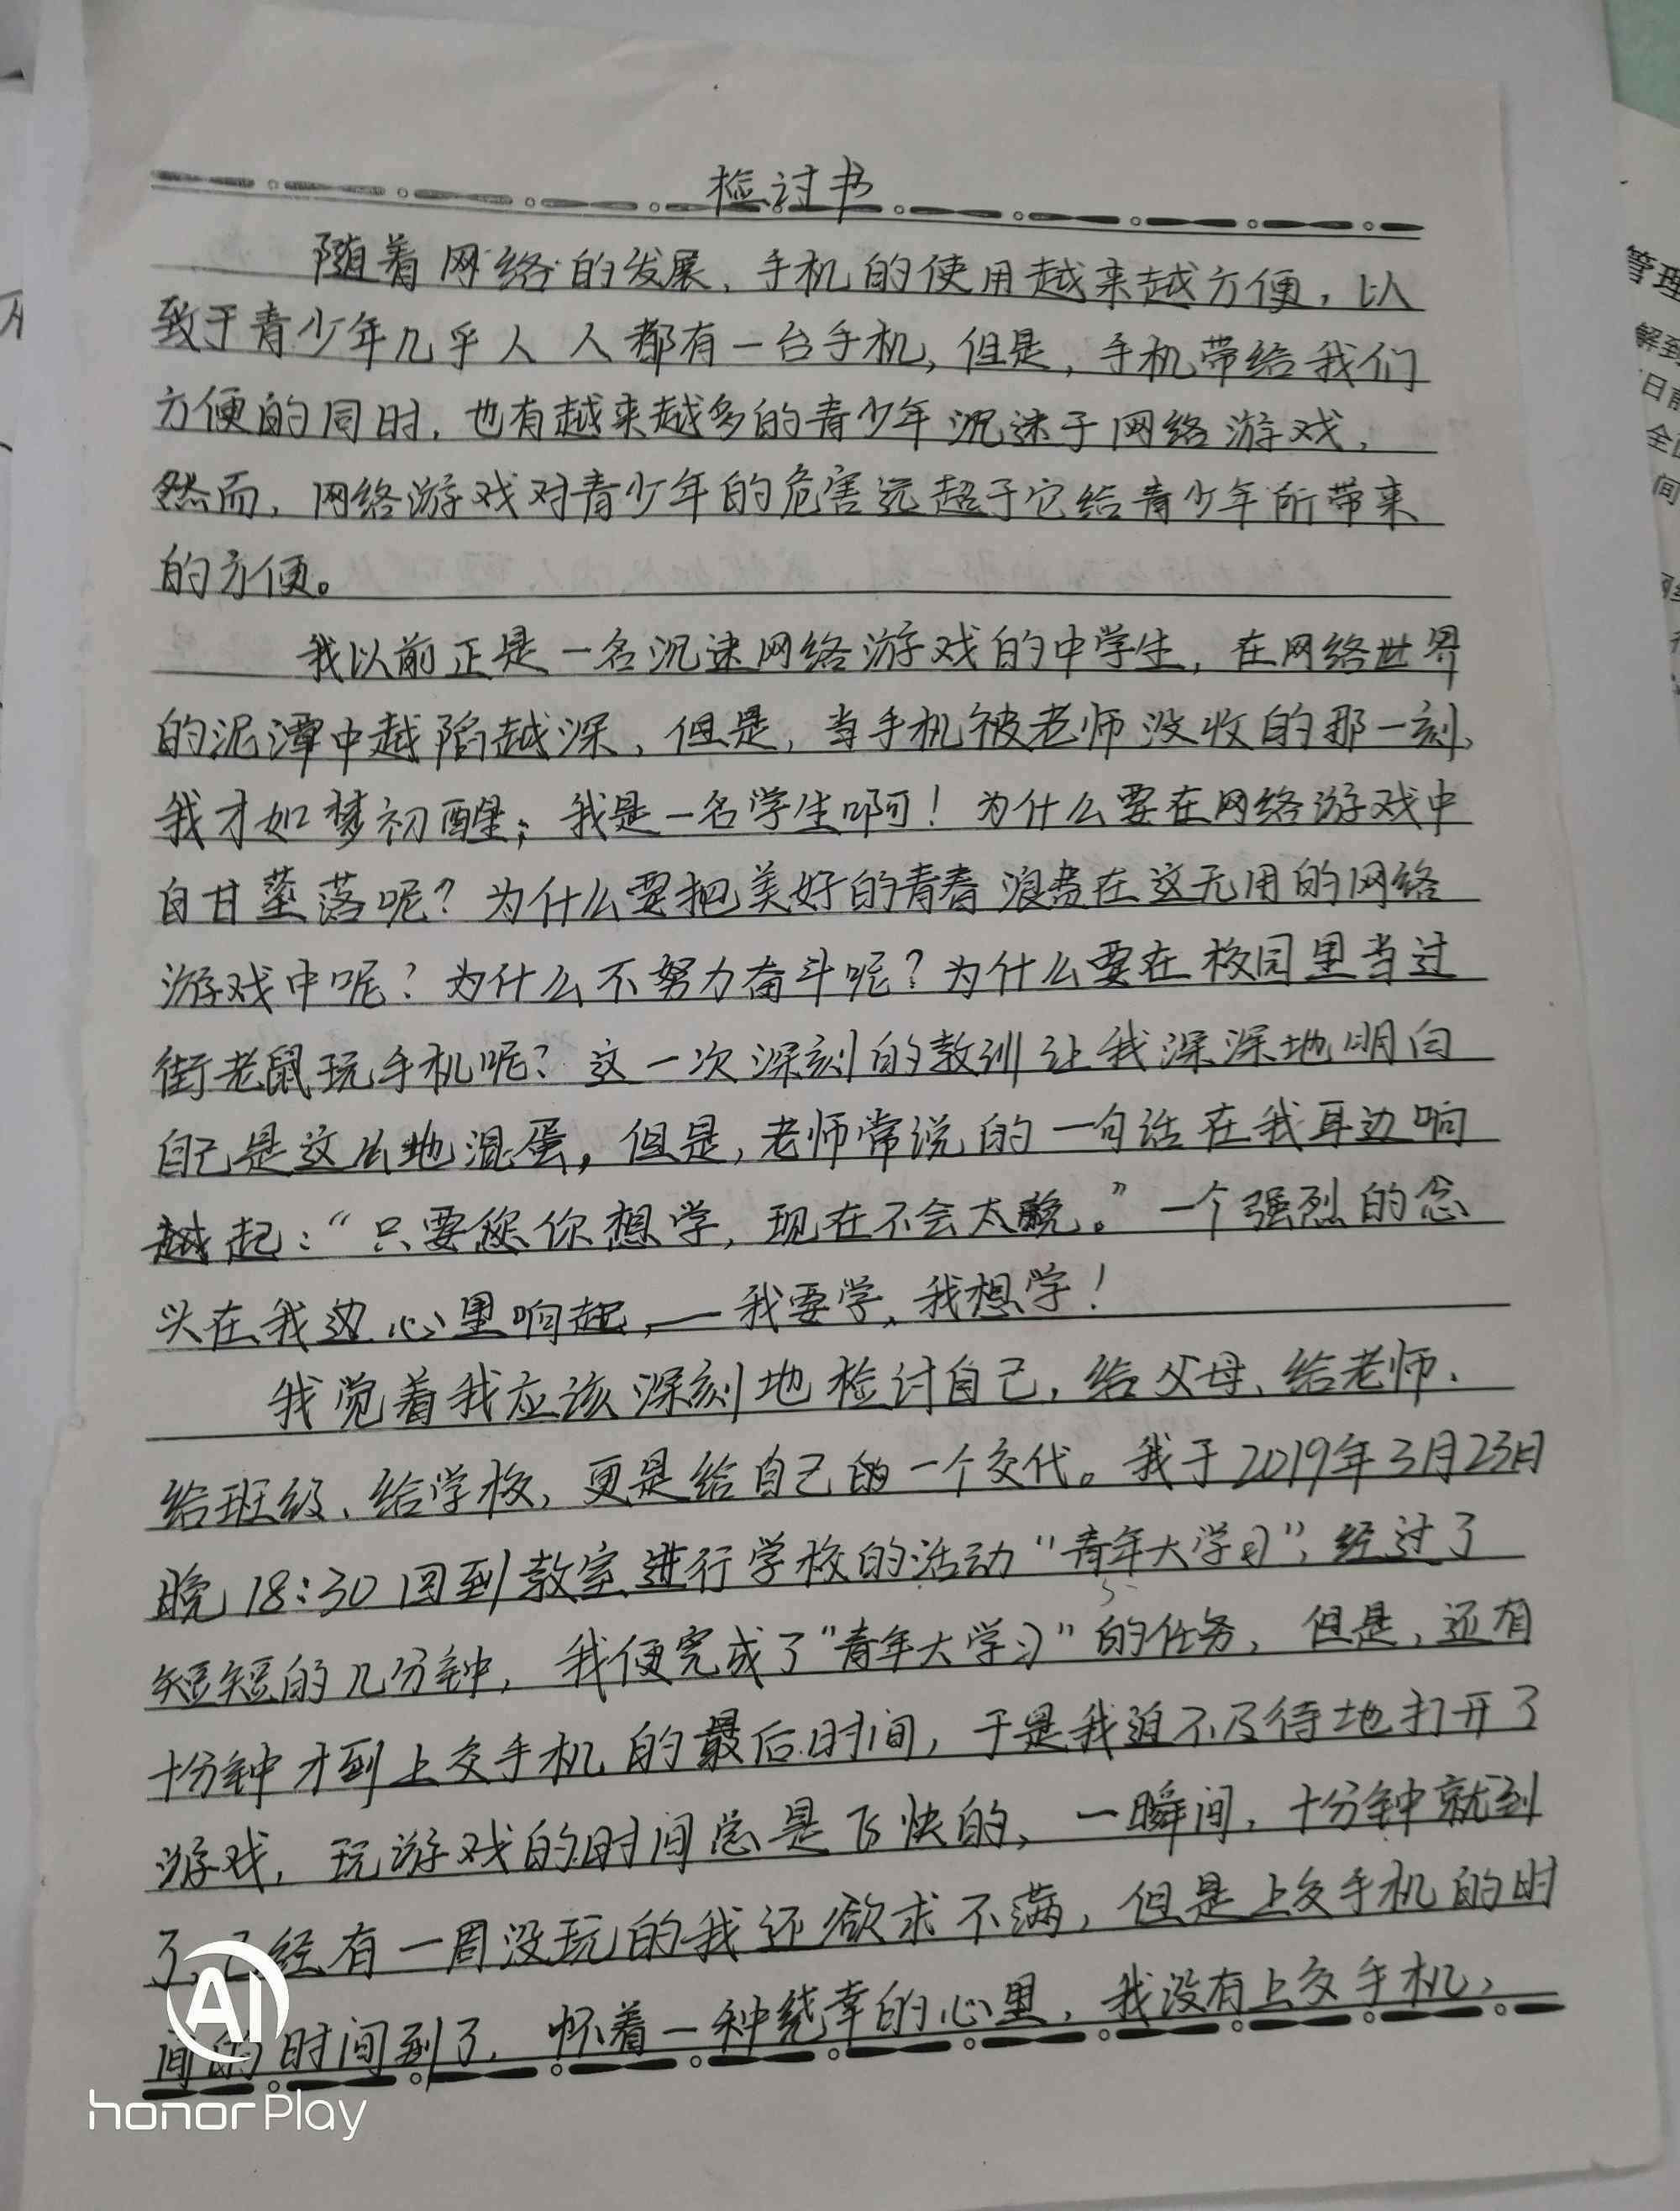 检讨书
随着网络的发展、手机的使用越来越方便，以
致于青少年几乎人人都有一台手机，但是，手机带给我们
方便的同时，也有越来越多的青少年沉迷于网络游戏，
然而，网络游戏对青少年的危害远超于它给青少年所带来
的方便。
我以前正是一名沉迷网络游戏的中学生，在网络世界
的泥潭中越陷越深，但是，当手机被老师没收的那一刻，
我才如梦初醒；我是一名学生啊！为什么要在网络游戏中
自甘坠落呢？为什么要把美好的青春浪费在这无用的网络
游戏中呢？为什么不努力奋斗呢？为什么要在校园里当过
街老鼠玩手机呢？这一次深刻的教训让我深深地明白
自己是这么地混蛋，但是，老师常说的一句话在我耳边响
越起：“只要您你想学，现在不会太晚。”一个强烈的念
头在我边心里响起，—我要学、我想学！
我觉着我应该深刻地检讨自己，给父母、给老师、
给班级、给学校，更是给自己的一个交代。我于2019年3月23日
晚18:30回到教室进行学校的活动“青年大学习”，经过了
短短的几分钟，我便完成了“青年大学习”的任务，但是，还有
十分钟才到上交手机的最后时间，于是我迫不及待地打开了
游戏，玩游戏的时间总是飞快的，一瞬间，十分钟就到
了，已经有一周没玩的我还欲求不满，但是上交手机的时
间的时间到了，怀着一种绕幸的心里，我没有上交手机，
AI
honor Play
管理
解到
日前
全面
间